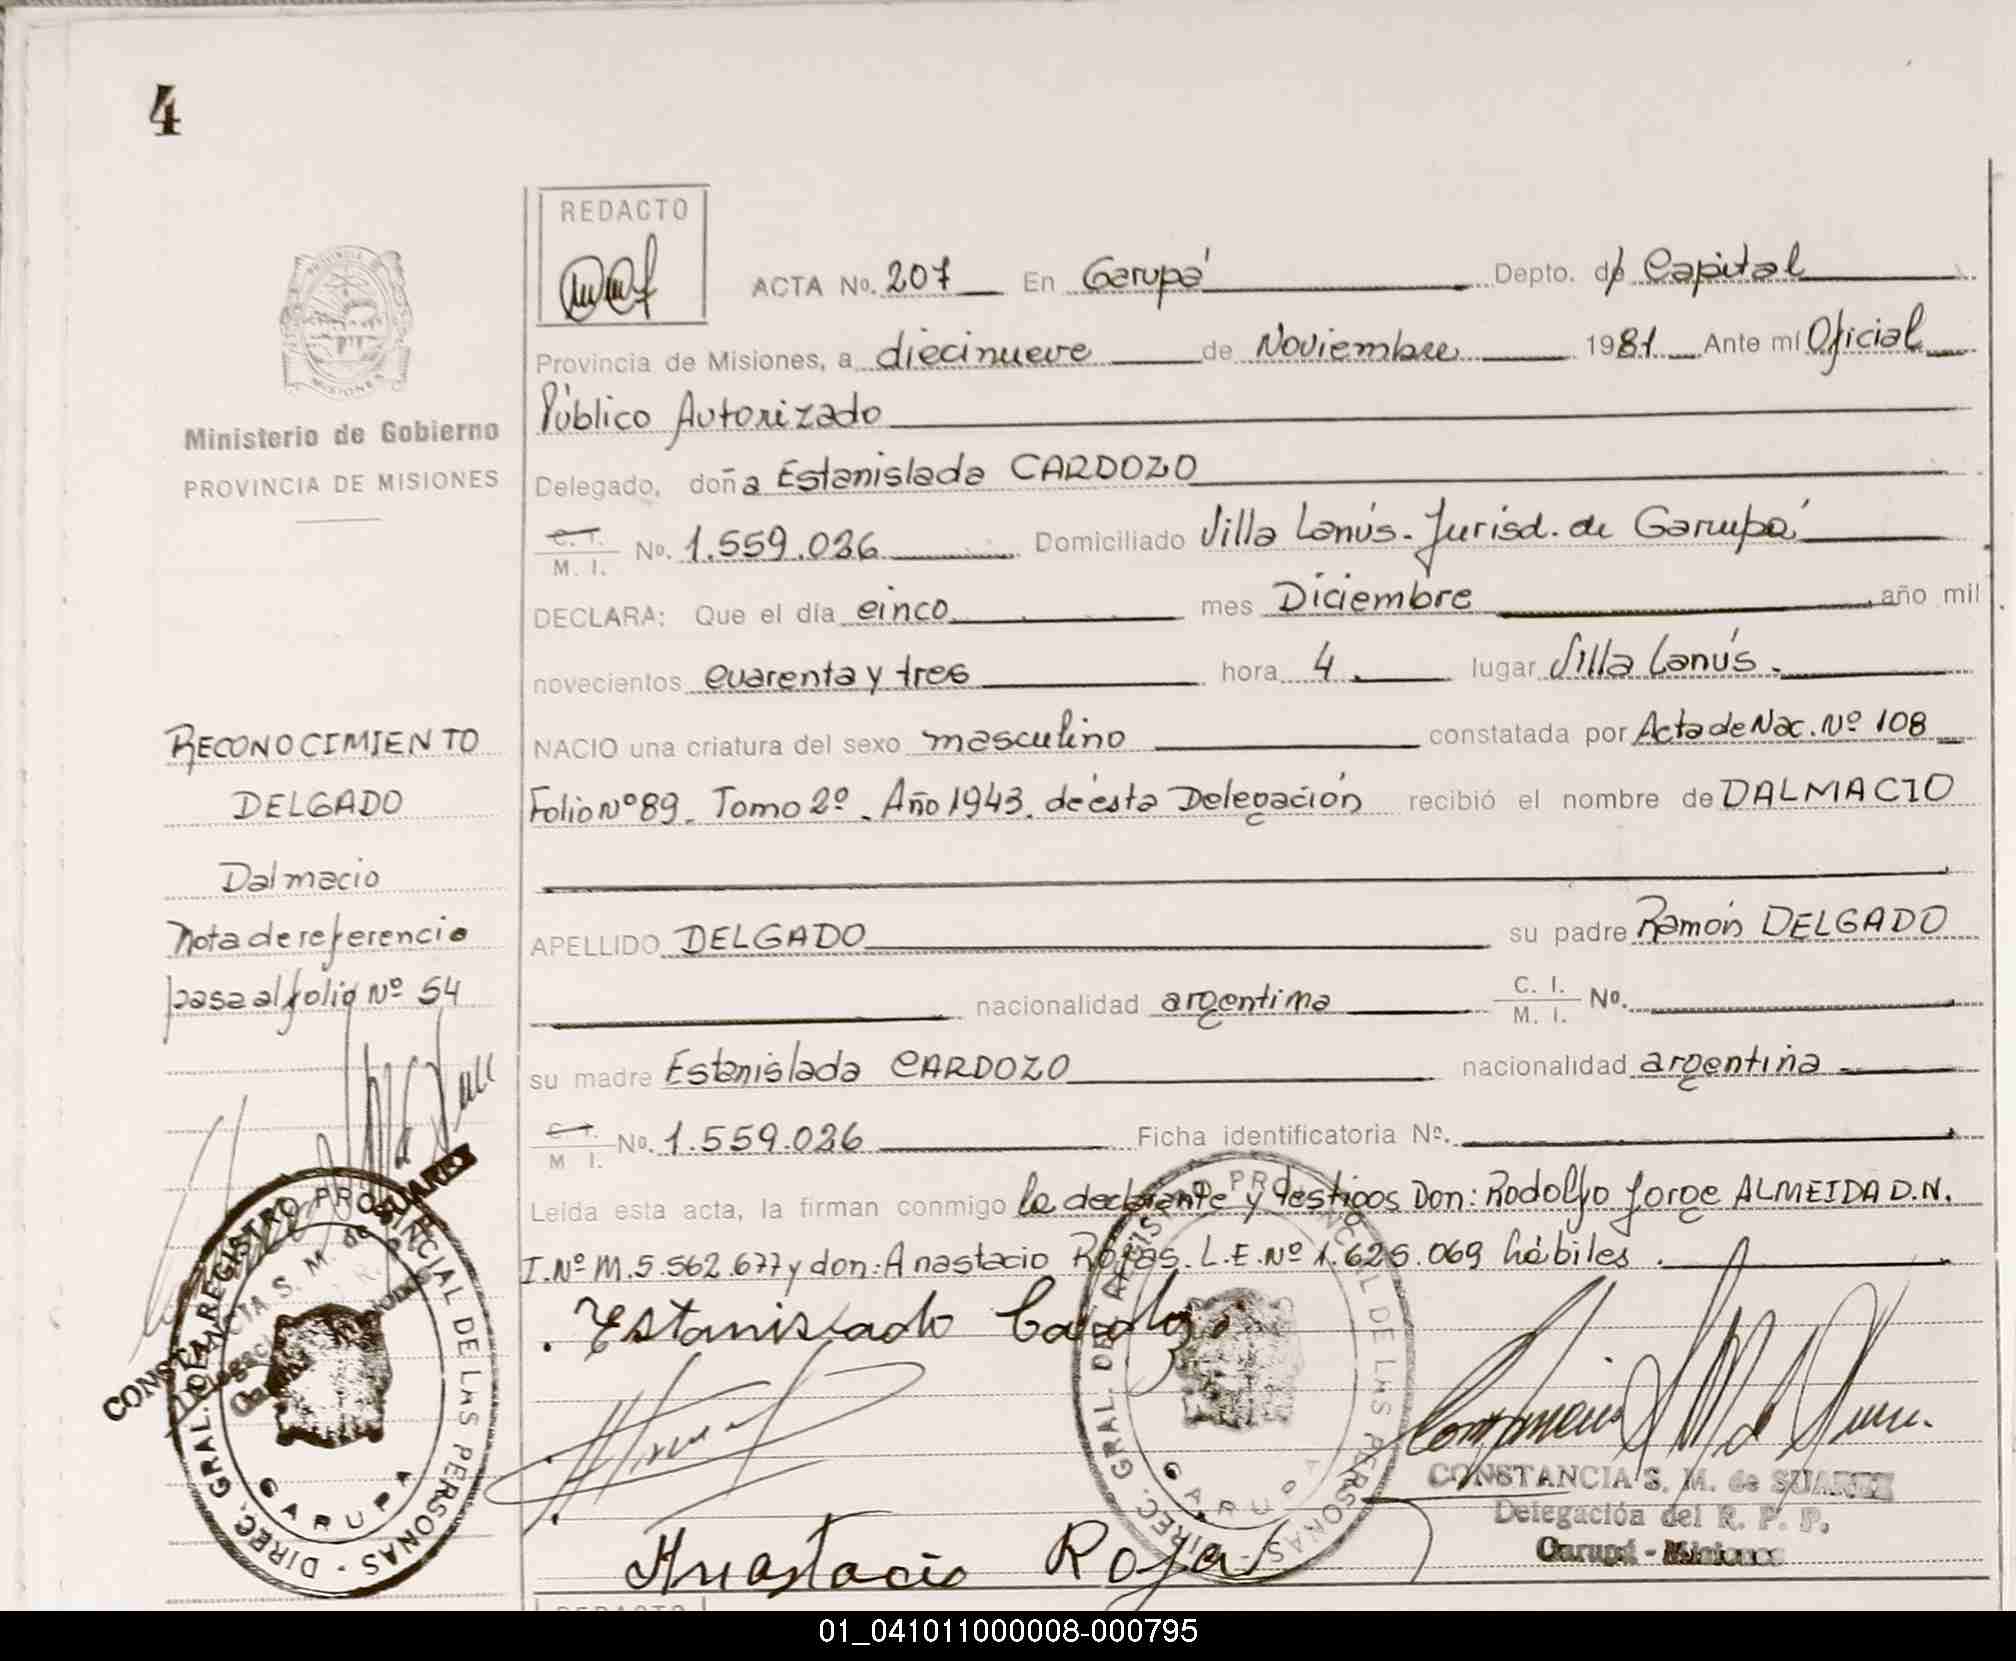 4
REDACTO
ACTA No. 207 En Garupá Depto. de Capital
Provincia de Misiones, a diecinueve de Noviembre 1981 Ante mí Oficial
Público Autorizado
Ministerio de Gobierno
PROVINCIA DE MISIONES
Delegado, doña Estanislada CARDOZO
C. I. M. I. No. 1.559.026 Domiciliado Villa Lanús. Jurisd. de Garupá
DECLARA: Que el día cinco mes Diciembre año mil
novecientos cuarenta y tres hora 4 lugar Villa Lanús.
RECONOCIMIENTO
NACIO una criatura del sexo masculino constatada por Acta de Nac. Nº 108
DELGADO
Folio Nº 89. Tomo 2º. Año 1943. de ésta Delegación recibió el nombre de DALMACIO
Dalmacio
Nota de referencia
APELLIDO DELGADO su padre Ramón DELGADO
pasa al folio Nº 54
nacionalidad argentina C. I. M. I. No.
su madre Estanislada CARDOZO nacionalidad argentina
C. I. M I. No. 1.559.026 Ficha identificatoria Nº.
Leída esta acta, la firman conmigo la declarante y testigos Don: Rodolfo Jorge ALMEIDA D.N.
I. Nº M. 5.562.677 y don: Anastacio Rojas. L.E. Nº 1.625.069 hábiles.
Estanislado Cardozo
DIREC. GRAL. DEL REGISTRO PROVINCIAL DE LAS PERSONAS
GARUPA
CONSTANCIA S. M. de SUAREZ
DIREC. GRAL. DEL REGISTRO PROVINCIAL DE LAS PERSONAS
GARUPA
CONSTANCIA S. M. de SUAREZ
Delegación del R. P. P.
Garupá - Misiones
Anastacio Rojas
REDACTO
01_041011000008-000795